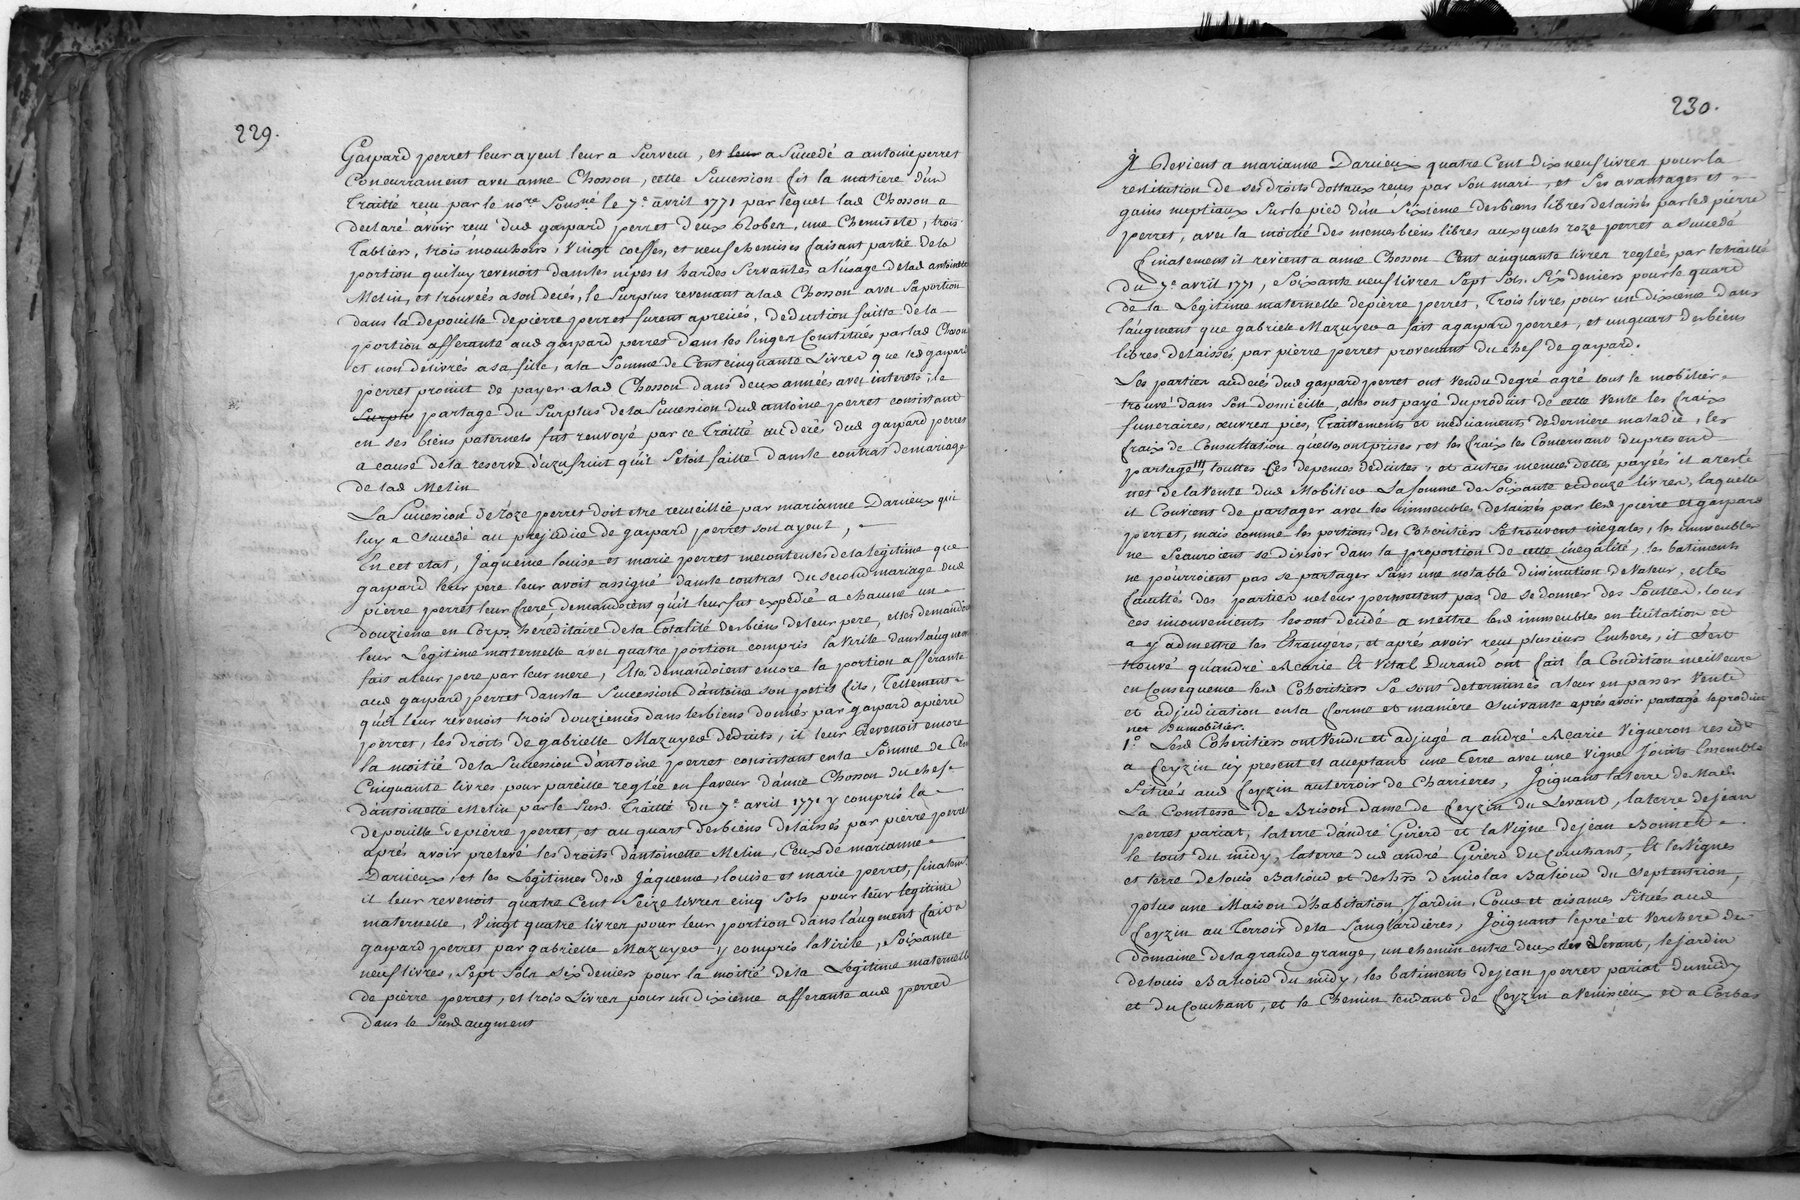 229.
Gaspard perret leur ayeul leur a survecu, et leur a succedé a antoine perret
Concurrament avec anne Chosson, cette succession fit la matiere d'un
Traitté reçu par le no.re soussné le 7.e avril 1771 par lequel lad Chosson a
declaré avoir reçu dud gaspard perret deux Robes, une Chemisete, trois
Tabliers, trois mouchoirs, Vingt coeffes, et neuf chemises faisant partie de la
portion qui luy revenoit dans les nipes et hardes servantes a l'usage de lad antoinette
Melin, et trouvées a son decés, le surplus revenant a lad Chosson avec sa portion
dans la depouille de pierre perret furent apreciés, deduction faitte de la
portion afferante aud gaspard perret dans les linges constitués par lad Chosson
et non delivrés a sa fille, a la somme de Cent cinquante Livres que led gaspard
perret promit de payer a lad Chosson dans deux années avec interets; le
surplus partage du surplus de la succession dud antoine perret consistant
en ses biens paternels fut renvoyé par ce Traitté au decés dud gaspard perret
a cause de la reserve d'uzufruit qu'il s'etoit faitte dans le contrat de mariage
de lad Melin
La succession de roze perret doit etre recueillie par marianne Darcieux qui
luy a succedé au prejudice de gaspard perret son ayeul,
En cet etat, Jaqueme louise et marie perret mecontentes de la legitime que
gaspard leur pere leur avoit assigné dans le contrat du second mariage dud
pierre perret leur frere, demandoient qu'il leur fut expedié a chacune un
douzieme en Corps héréditaire de la totalité des biens de leur pere, elles demandoient
leur Legitime maternelle avec quatre portion compris la Virile dans l'augment
fait a leur pere par leur mere, Elle demandoient encore la portion afferante
aud gaspard perret dans la succession d'antoine son petit fils, Tellement
qu'il leur revenoit trois douziemes dans les biens donnés par gaspard a pierre
perret, les droits de gabrielle Mazuyer deduits, il leur Revenoit encore
la moitié de la succession d'antoine perret consistant en la somme de Cent
Cinquante livres pour pareille reglée en faveur d'anne Chosson du chef
d'antoinette Melin par le susd. Traitté du 7.e avril 1771 y compris la
depouille de pierre perret, et au quart des biens delaissés par pierre perret
aprés avoir prelevé les droits d'antoinette Melin, Ceux de marianne
Darcieux, et les Legitimes desd Jaqueme, louise et marie perret, finalemt.
il leur revenoit quatre Cent seize livres cinq sols pour leur legitime
maternelle, Vingt quatre livres pour leur portion dans l'augment fait a
gaspard perret par gabrielle Mazuyer y compris la Virile, Soixante
neuf livres, sept sols six deniers pour la moitié de la Legitime maternelle
de pierre perret, et trois Livres pour un dixieme afferante aud perret
dans le susd augment
230.
Il Revient a marianne Darcieux quatre Cent dix neuf livres pour la
restitution de ses droits dottaux reçus par son mari, et ses avantages et
gains nuptiaux sur le pied d'un sixieme des biens libres delaissés par led pierre
perret, avec la moitié des memes biens libres auxquels roze perret a succedé
Finalement il revient a anne Chosson Cent cinquante livres reglées par le traitté
du 7.e avril 1771, soixante neuf livres sept sols six deniers pour le quard
de la Legitime maternelle de pierre perret, Trois livres pour un dixieme dans
l'augment que gabriele Mazuyer a fait a gaspard perret, et un quart des biens
libres delaissés par pierre perret provenant du chef de gaspard.
Les parties au decés dud gaspard perret ont vendu de gré a gré tout le mobilier
trouvé dans son domicille, elles ont payé du produit de cette vente les fraix
funeraires, œuvres pies, Traittements et medicaments de derniere maladie, les
fraix de Consultation qu'elles ont prises, et les fraix les Concernant du present
partage, touttes ces depenses deduites, et autres menues dettes payées il a resté
net de la vente dud Mobilier La somme de soixante et douze livres, laquelle
il Convient de partager avec les immeubles delaissés par lesd pierre et gaspard
perret, mais comme les portions des Coheritiers se trouvent inegales, les immeubles
ne sçauroient se diviser dans la proportion de cette inegalité, les batiments
ne pourroient pas se partager sans une notable diminution de valeur, et les
facultés des parties ne leur permettent pas de se donner des soultes, tous
ces inconvenients les ont decidé a mettre lesd immeubles en licitation et
a y admettre les Etrangers, et aprés avoir reçu plusieurs Encheres, il s'est
trouvé qu'andré Acarie Et Vital Durand ont fait la Condition meilleure
en consequence lesd Coheritiers se sont determinés a leur en passer Vente
et adjudication en la forme et maniere suivante aprés avoir partagé le produit
net du mobilier.
1.o Lesd Coheritiers ont Vendu et adjugé a andré Acarie Vigneron resid.t
a feyzin icy present et acceptant une Terre avec une vigne Joints Ensemble
situés aud feyzin au terroir de Charrieres, Joignant la terre de Made
La Comtesse de Brison Dame de feyzin du Levant, la terre de jean
perret pariat, la terre d'andré Girerd et la vigne de jean Bonnet
le tout du midy, la terre dud andré Girerd du Couchant, Et les Vignes
et terre de louis Baliod et des hrs de nicolas Baliod du septentrion,
plus une Maison d'habitation Jardin, Cour et aisances situés aud
feyzin au Terroir de la Sanglardieres, Joignant le pré et verchere du
domaine de la grande grange, un chemin entre deux des Levant, le jardin
de louis Baliod du midy, les batiments de jean perret pariat du midy
et du Couchant, et le Chemin tendant de feyzin a Venissieux et a Corbas